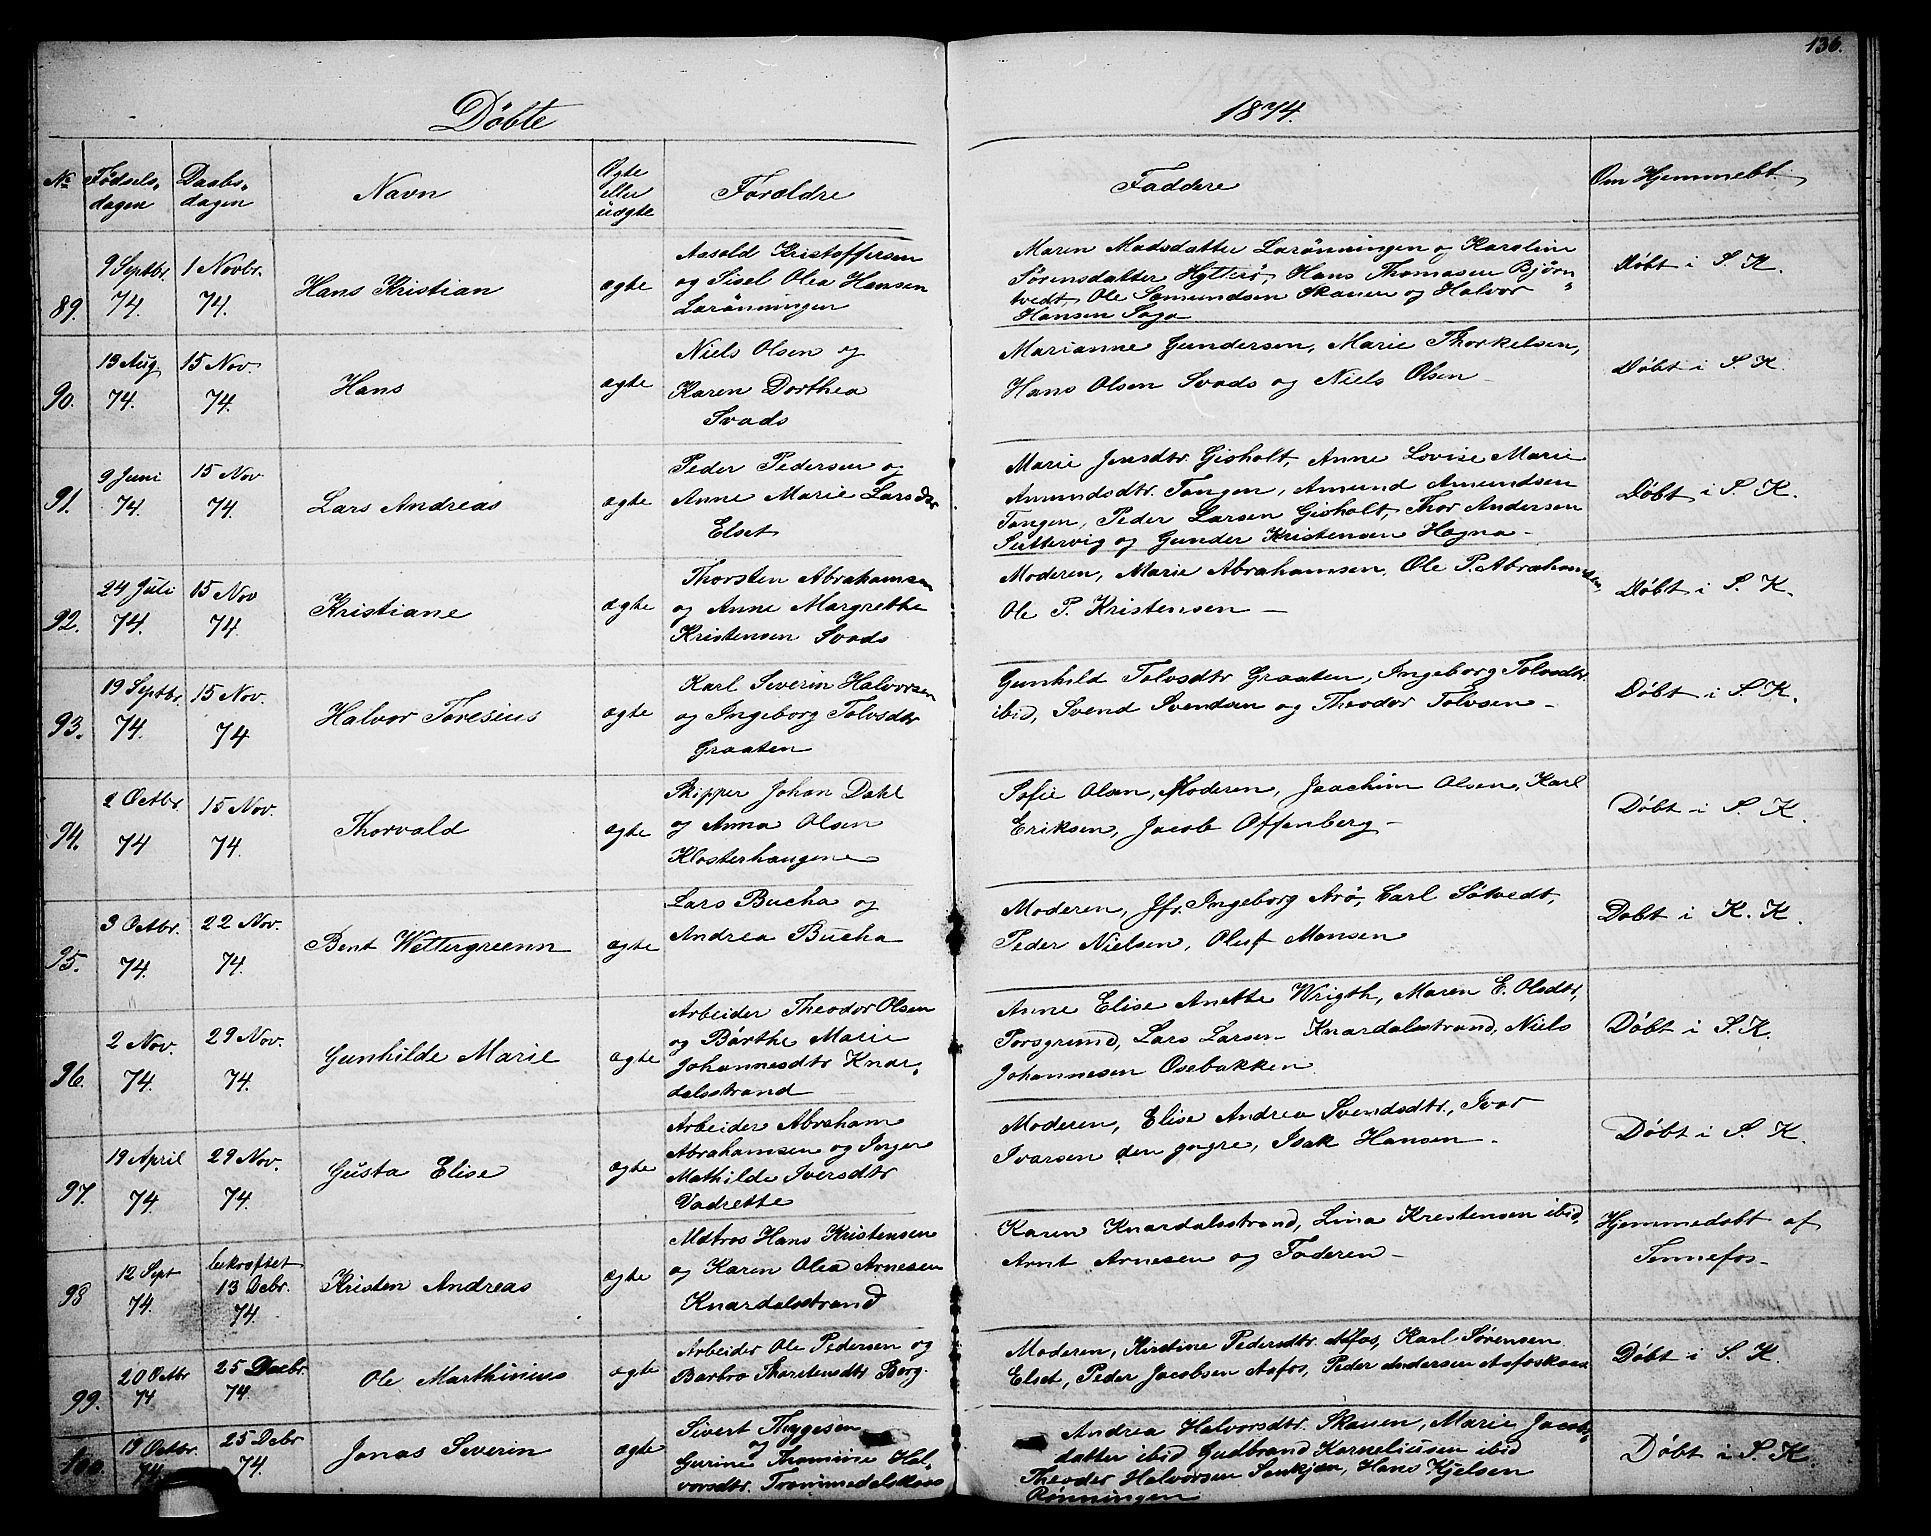 136.
Døbte 1874.
No Fødsels- dagen Daabs- dagen Navn Ægte eller uægte Forældre Faddere Om Hjemmebt.
89. 9 Septbr. 74. 1 Novbr. 74. Hans Kristian ægte
Aasold Kristoffersen
og Sisel Olea Hansen
Larønningen
Maren Madsdatter Larønningen og Karoline
Sørensdatter Hytterø, Hans Thomasen Bjørn
tvedt, Ole Samundsen Skauen og Halvor
Hansen Saga
Døbt i S. K.
90. 13 Aug. 74. 15 Nov. 74. Hans ægte
Niels Olsen og
Karen Dorthea
Svads
Marianne Gundersen, Marie Thorkelsen,
Hans Olsen Svads og Niels Olsen -
Døbt i S. K.
91. 9 Juni 74. 15 Nov 74. Lars Andreas ægte
Peder Pedersen og
Anne Marie Larsdtr
Elset
Marie Jensdtr. Gisholt, Anne Lovise Marie
Amundsdtr. Tangen, Amund Amundsen
Tangen, Peder Larsen Gisholt, Thor Andersen
og Gunder Kristensen Hogna -
Døbt i S. K.
92. 24 Juli 74. 15 Nov 74. Kristiane ægte
Thorsten Abrahamsen
og Anne Margrethe
Kristensen Svads
Moderen, Marie Abrahamsen, Ole P. Abrahamsen
Ole P. Kristensen -
Døbt i S. K.
93. 19 Septbr. 74. 15 Nov. 74 Halvor Toresius ægte
Karl Severin Halvorsen
og Ingeborg Tolvsdtr
Graaten
Gunhild Tolvsdtr Graaten, Ingeborg Tolvsdtr.
ibid, Svend Svendsen og Theodor Tolvsen -
Døbt i S. K.
94. 2 Octbr. 74 15 Nov. 74. Thorvald ægte
Skipper Johan Dahl
og Anna Olsen
Klosterhaugene
Sofie Olsen, Moderen, Joachim Olsen, Karl
Eriksen, Jacob Offenberg -
Døbt i S. K.
95. 3 Octbr. 74. 22 Nov. 74. Bent Wettergreenn ægte
Lars Bucha og
Andrea Bucha
Moderen, Jfr. Ingeborg Arø, Carl Søtvedt,
Peder Nielsen, Oluf Monsen
Døbt i K. K.
96. 2 Nov. 74. 29 Nov. 74. Gunhilde Marie ægte
Arbeider Theodor Olsen
og Bärthe Marie
Johannesdtr Knar-
dalsstrand
Anne Elise Anette Wrigth, Maren E. Olsdtr,
Porsgrund, Lars Larsen Knardalsstrand, Niels
Johannesen Osebakken.
Døbt i S. K.
97. 19 April 74. 29 Nov. 74. Gusta Elise ægte
Arbeider Abraham
Abrahamsen og Inger
Mathilde Iversdtr
Vadrette
Moderen, Elise Andrea Svendsdtr., Ivar
Ivarsen den yngre, Isak Hansen -
Døbt i S. K.
98 12 Sept 74. bekræftet 13 Decbr. 74. Kristen Andreas ægte
Matros Hans Kristensen
og Karen Olea Arnesen
Knardalsstrand
Karen Knardalsstrand, Lina Kristensen ibid,
Arnt Arnesen og Faderen -
Hjemmedøbt af
Tennefos -
99. 20 Octbr 74 25 Decbr. 74. Ole Marthinius ægte
Arbeider Ole Pedersen og
Barbro Thorstensdtr Borg.
Moderen, Kirstine Pedersdtr. Aafos, Karl Sørensen
Elset, Peder Jacobsen Aafos, Peder Andersen Aafoskaas
Døbt i S. K.
100. 19 Octbr. 74. 25 Decbr 74. Jonas Severin ægte
Sivert Thygesen
og
Gurine Thomine Hal-
vorsdtr. Trommedalskaas
Andrea Halvorsdtr. Skauen, Marie Jacobs-
datter ibid Gudbrand Korneliussen ibid
Theodor Halvorsen, Hans Kjelsen
Rønningen
Døbt i S. K.